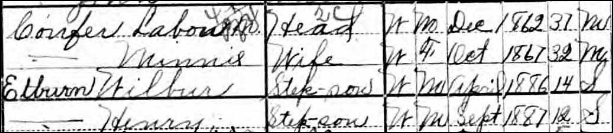 Confer Labourn Head W M Dec 1862 37 M
— Minnie Wife W F Oct 1867 32 M
Elburn Wilbur Step-son W M April 1886 14 S
— Henry Step-son W M Sept 1887 12 S